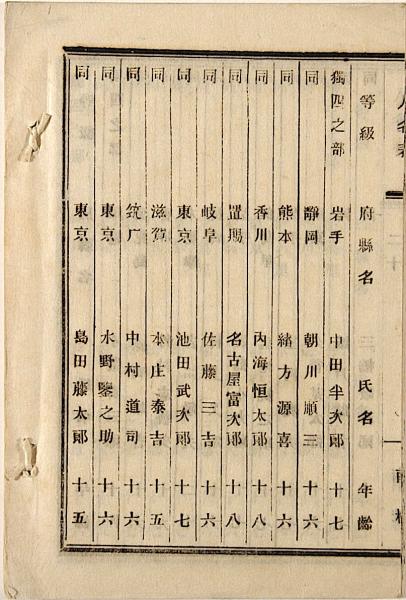 等級 府縣名 氏名 年齡
獨四之部 岩手 中田半次郎 十七
同 靜岡 朝川順三 十六
同 熊本 緒方源喜 十六
同 香川 內海恒太郎 十八
同 置賜 名古屋富次郎 十八
同 岐阜 佐藤三吉 十六
同 東京 池田武次郎 十七
同 滋賀 本庄泰吉 十五
同 筑广 中村道司 十六
同 東京 水野鑒之助 十六
同 東京 島田藤太郎 十五